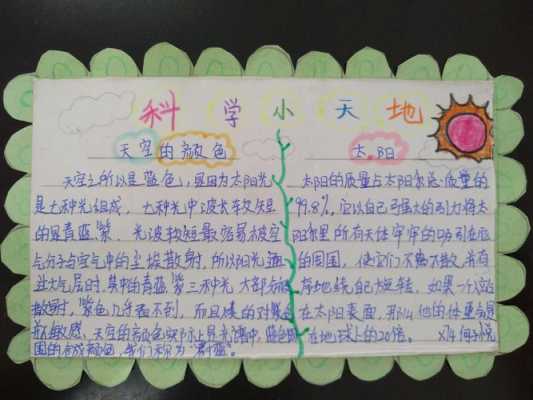 科学小天地
天空的颜色
天空之所以是蓝色,是因为太阳光
是七种光组成,七种光中波长较短
的是青蓝紫,光波较短最容易被空
气分子与空气中的尘埃散射,所以阳光通
过大气层时,其中的青蓝紫三种光大部分被
散射,紫色几乎看不到,而且
敏感,天空的颜色实际上是光谱中,蓝色
围的合成颜色,我们称为"蔚蓝"。
太阳
太阳的质量占太阳系总质量的
99.8%,它以自己强大的引力将太
阳系里所有天体牢牢的吸引在它
的周围,使它们不离不散,井有
序地绕自己旋转,如果一个人站
在太阳表面,那么他的体重将是
在地球上的20倍。